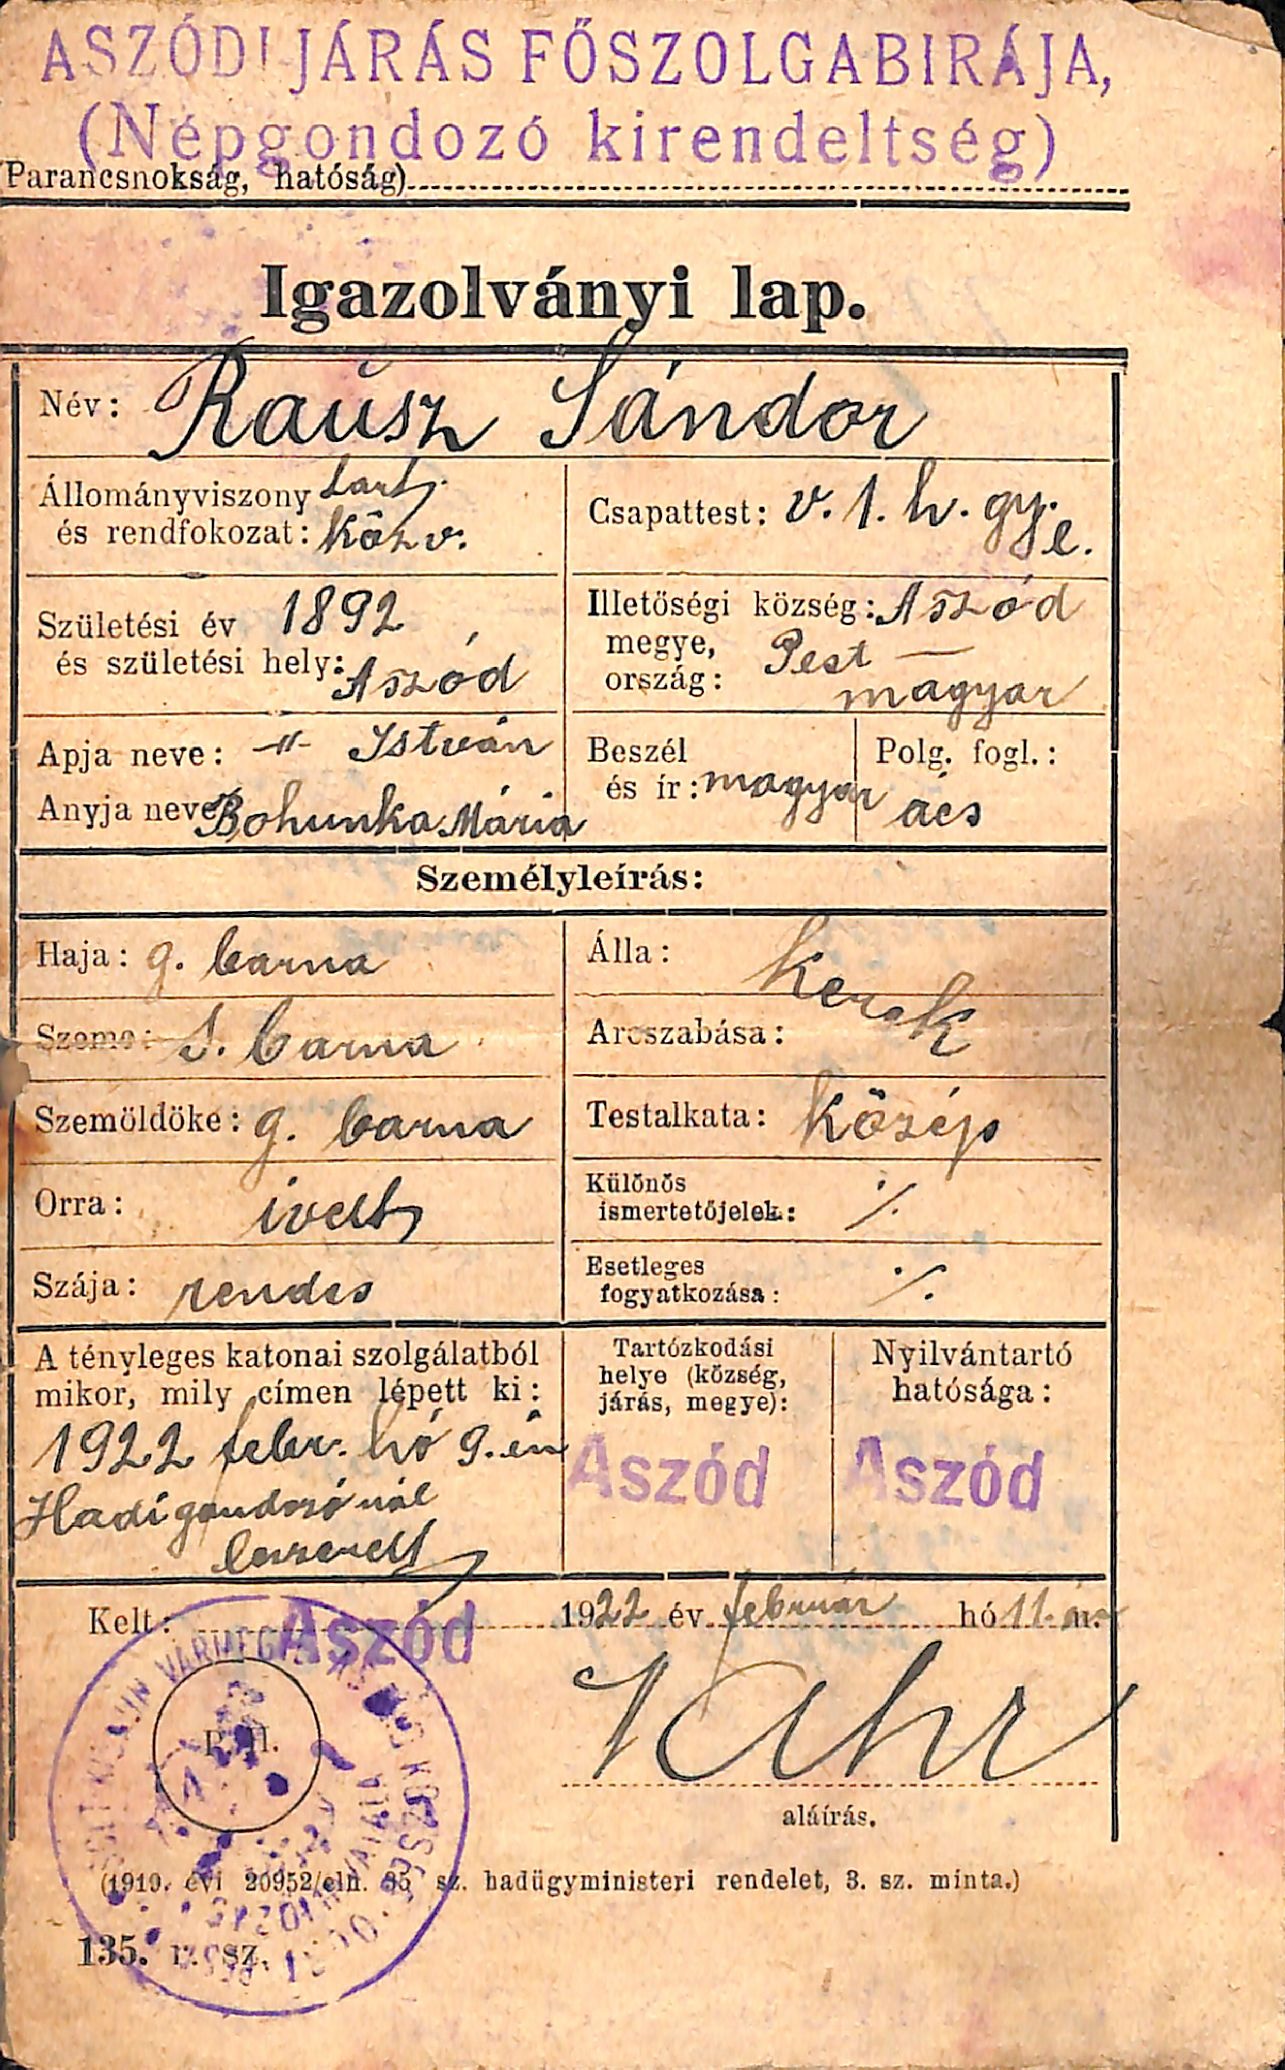 ASZÓDI JÁRÁS FŐSZOLGABIRÁJA,
(Népgondozó kirendeltség)
(Parancsnokság, hatóság)
Igazolványi lap.
Név: Rausz Sándor
Állományviszony tart.
és rendfokozat: közv.
Csapattest: v. 1. h. gy. e.
Születési év 1892
és születési hely: Aszód
Illetőségi község: Aszód
megye, Pest —
ország: magyar
Apja neve: -"- István
Anyja neve Bohunka Mária
Beszél
és ír: magyar
Polg. fogl.:
ács
Személyleírás:
Haja: g. barna
Álla: kerek
Szeme: s. barna
Arcszabása:
Szemöldöke: g. barna
Testalkata: közép
Orra: ívelt
Különös
ismertetőjelek: ./.
Szája: rendes
Esetleges
fogyatkozása: ./.
A tényleges katonai szolgálatból
mikor, mily címen lépett ki:
1922 febr. hó 9.-én
Hadigondozónál
leszerelt
Tartózkodási
helye (község,
járás, megye):
Aszód
Nyilvántartó
hatósága:
Aszód
Kelt: Aszód 1922 év február hó 11.-én.
P. H.
Vahr
aláírás.
(1919. évi 20952/eln. 35 sz. hadügyministeri rendelet, 3. sz. minta.)
135. r. sz.